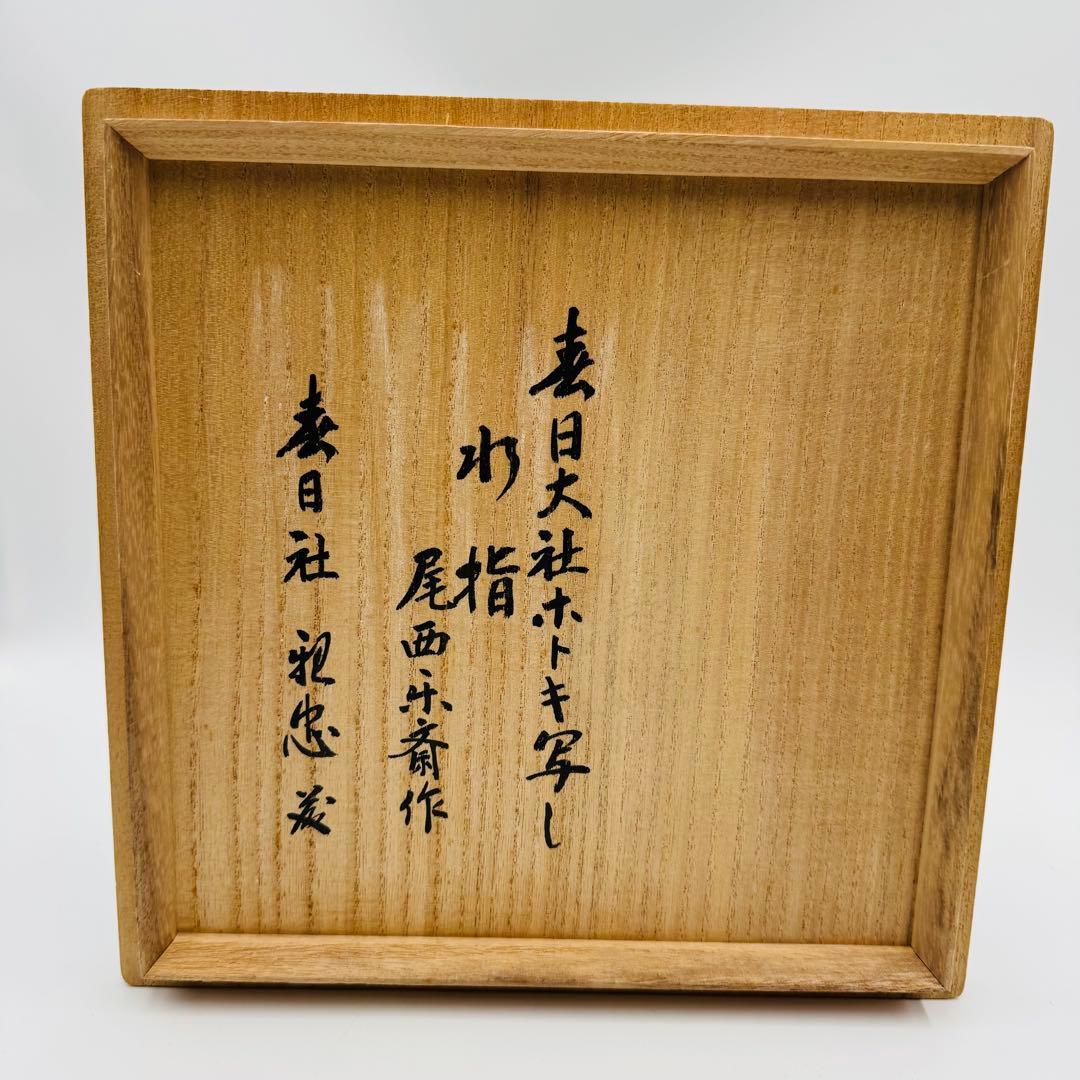 春日大社ホトキ写し
水指
尾西楽斎作
春日社 親忠